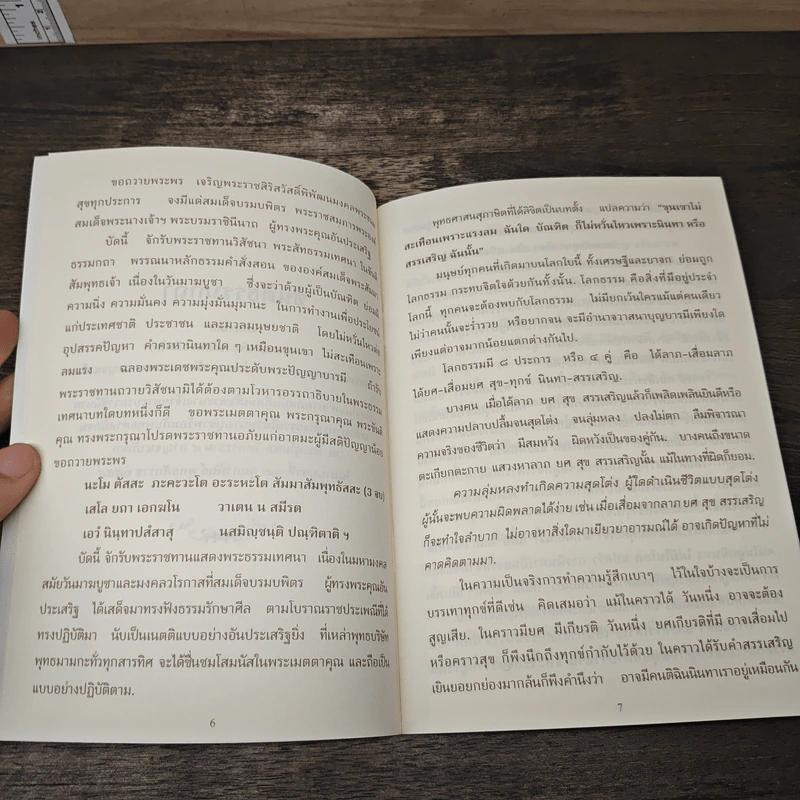 ขอถวายพระพร เจริญพระราชสิริสวัสดิ์พิพัฒนมงคลพระชนม
สุขทุกประการ จงมีแด่สมเด็จบรมบพิตร พระราชสมภารพระองค์
สมเด็จพระนางเจ้าฯ พระบรมราชินีนาถ ผู้ทรงพระคุณอันประเสริฐ
บัดนี้ จักรับพระราชทานวิสัชนา พระสัทธรรมเทศนา ในขันติ
ธรรมกถา พรรณนาหลักธรรมคำสั่งสอน ขององค์สมเด็จพระสัมมา
สัมพุทธเจ้า เนื่องในวันมาฆบูชา ซึ่งจะว่าด้วยผู้เป็นบัณฑิต ย่อมมี
ความนิ่ง ความมั่นคง ความมุ่งมั่นมุมานะ ในการทำงานเพื่อประโยชน์
แก่ประเทศชาติ ประชาชน และมวลมนุษยชาติ โดยไม่หวั่นไหวต่อ
อุปสรรคปัญหา คำครหานินทาใด ๆ เหมือนขุนเขา ไม่สะเทือนเพราะ
ลมแรง ฉลองพระเดชพระคุณประดับพระปัญญาบารมี ถ้ารับ
พระราชทานถวายวิสัชนามิได้ต้องตามโวหารอรรถาธิบายในพระธรรม
เทศนาบทใดบทหนึ่งก็ดี ขอพระเมตตาคุณ พระกรุณาคุณ พระขันติ
คุณ ทรงพระกรุณาโปรดพระราชทานอภัยแก่อาตมะผู้มีสติปัญญาน้อย
ขอถวายพระพร
นะโม ตัสสะ ภะคะวะโต อะระหะโต สัมมาสัมพุทธัสสะ (3 จบ)
เสโล ยถา เอกฆโน วาเตน น สมีรติ
เอวํ นินฺทาปสํสาสุ น สมิญฺชนฺติ ปณฺฑิตาติ ฯ
บัดนี้ จักรับพระราชทานแสดงพระธรรมเทศนา เนื่องในมหามงคล
สมัยวันมาฆบูชาและมงคลวโรกาสที่สมเด็จบรมบพิตร ผู้ทรงพระคุณอัน
ประเสริฐ ได้เสด็จมาทรงฟังธรรมรักษาศีล ตามโบราณราชประเพณีที่ได้
ทรงปฏิบัติมา นับเป็นเนตติแบบอย่างอันประเสริฐยิ่ง ที่เหล่าพุทธบริษัท
พุทธมามกะทั่วทุกสารทิศ จะได้ชื่นชมโสมนัสในพระเมตตาคุณ และถือเป็น
แบบอย่างปฏิบัติตาม.
6
พุทธศาสนสุภาษิตที่ได้ลิขิตเป็นบทตั้ง แปลความว่า "ขุนเขาไม่
สะเทือนเพราะแรงลม ฉันใด บัณฑิต ก็ไม่หวั่นไหวเพราะนินทา หรือ
สรรเสริญ ฉันนั้น"
มนุษย์ทุกคนที่เกิดมาบนโลกใบนี้ ทั้งเศรษฐีและยาจก ย่อมถูก
โลกธรรม กระทบจิตใจด้วยกันทั้งนั้น. โลกธรรม คือสิ่งที่มีอยู่ประจำ
โลกนี้ ทุกคนจะต้องพบกับโลกธรรม ไม่มียกเว้นใครแม้แต่คนเดียว
ไม่ว่าคนนั้นจะร่ำรวย หรือยากจน จะมีอำนาจวาสนาบุญบารมีเพียงใด
เพียงแต่อาจมากน้อยแตกต่างกันไป.
โลกธรรมมี ๘ ประการ หรือ ๔ คู่ คือ ได้ลาภ-เสื่อมลาภ
ได้ยศ-เสื่อมยศ สุข-ทุกข์ นินทา-สรรเสริญ.
บางคน เมื่อได้ลาภ ยศ สุข สรรเสริญแล้วก็เพลิดเพลินยินดีหรือ
แสดงความลาบปลื้มจนสุดโต่ง จนลุ่มหลง ปลงไม่ตก ลืมพิจารณา
ความจริงของชีวิตว่า มีสมหวัง ผิดหวังเป็นของคู่กัน. บางคนถึงขนาด
ตะเกียกตะกาย แสวงหาลาภ ยศ สุข สรรเสริญนั้น แม้ในทางที่ผิดก็ยอม.
ความลุ่มหลงทำเกิดความสุดโต่ง ผู้ใดดำเนินชีวิตแบบสุดโต่ง
ผู้นั้นจะพบความผิดพลาดได้ง่าย เช่น เมื่อเสื่อมจากลาภ ยศ สุข สรรเสริญ
ก็จะทำใจลำบาก ไม่อาจหาสิ่งใดมาเยียวยาอารมณ์ได้ อาจเกิดปัญหาที่ไม่
คาดคิดตามมา.
ในความเป็นจริงการทำความรู้สึกเบาๆ ไว้ในใจบ้างจะเป็นการ
บรรเทาทุกข์ที่ดีเช่น คิดเสมอว่า แม้ในคราวได้ วันหนึ่ง อาจจะต้อง
สูญเสีย. ในคราวมียศ มีเกียรติ วันหนึ่ง ยศเกียรติที่มี อาจเสื่อมไป
หรือคราวสุข ก็พึงนึกถึงทุกข์กำกับไว้ด้วย ในคราวได้รับคำสรรเสริญ
เยินยอยกย่องมากล้นก็พึงคำนึงว่า อาจมีคนติฉินนินทาเราอยู่เหมือนกัน
7